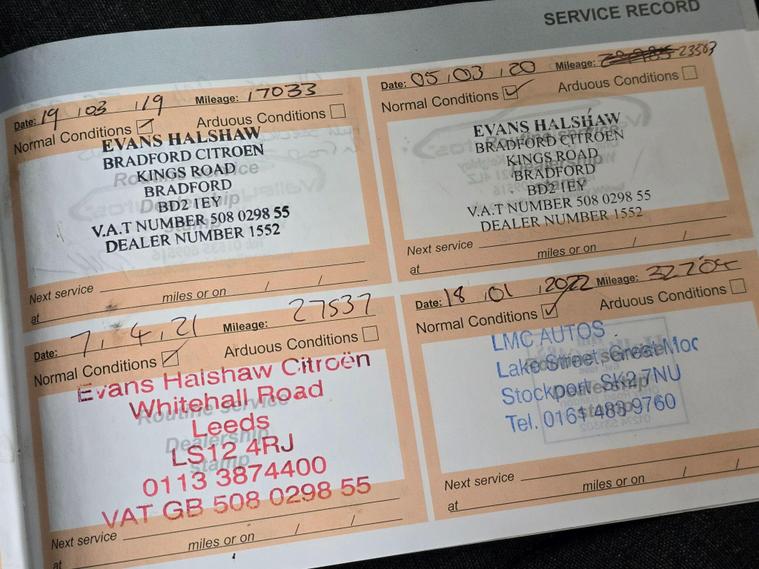 SERVICE RECORD
Date: 19 / 03 / 19 Mileage: 17033
Normal Conditions ☑ Arduous Conditions ☐
EVANS HALSHAW
BRADFORD CITROEN
KINGS ROAD
BRADFORD
BD2 1EY
V.A.T NUMBER 508 0298 55
DEALER NUMBER 1552
Routine Service
Dealership
Stamp
Next service
at miles or on / /
Date: 05 / 03 / 20 Mileage: 23563
Normal Conditions ☑ Arduous Conditions ☐
EVANS HALSHAW
BRADFORD CITROEN
KINGS ROAD
BRADFORD
BD2 1EY
V.A.T NUMBER 508 0298 55
DEALER NUMBER 1552
Next service
at miles or on / /
Date: 7 . 4 . 21 Mileage: 27537
Normal Conditions ☑ Arduous Conditions ☐
Evans Halshaw Citroën
Whitehall Road
Leeds
LS12 4RJ
0113 3874400
VAT GB 508 0298 55
Routine Service
Dealership
Stamp
Next service
at miles or on / /
Date: 18 / 01 / 2022 Mileage: 32704
Normal Conditions ☑ Arduous Conditions ☐
LMC AUTOS
Lake Street, Great Moor
Stockport SK2 7NU
Tel. 0161 483 9760
Routine Service
Dealership
Stamp
Next service
at miles or on / /